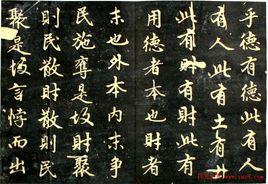 乎德有德此有人
有人此有土有
此有財有財此有
用德者本也財者
末也外本內末爭
民施奪是故財聚
則民散財散則民
聚是故言悖而出